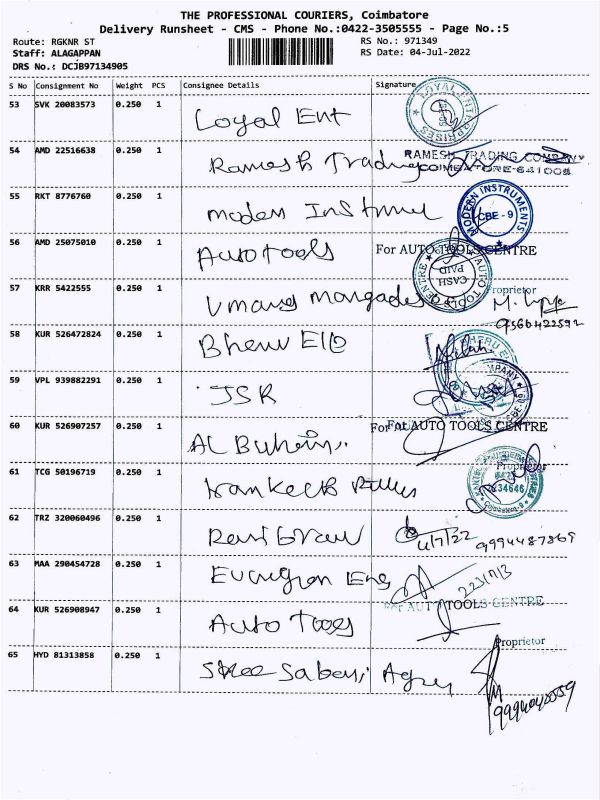 THE PROFESSIONAL COURIERS, Coimbatore
Delivery Runsheet - CMS - Phone No.:0422-3505555 - Page No.:5
Route: RGKNR ST RS No.: 971349
Staff: ALAGAPPAN RS Date: 04-Jul-2022
DRS No.: DCJB97134905
S No Consignment No Weight PCS Consignee Details Signature
53 SVK 20083573 0.250 1 Loyal Ent LOYAL ENTERPRISES
54 AMD 22516638 0.250 1 Ramesh Trading RAMESH TRADING COMPANY
COIMBATORE-641008
55 RKT 8776760 0.250 1 Modern MODERN INSTRUMENTS CBE - 9
56 AMD 25075010 0.250 1 Auto tools For AUTO TOOLS CENTRE
AUTO TOOLS CENTRE CASH PAID
57 KRR 5422555 0.250 1 Umang Proprietor
9566422592
58 KUR 526472824 0.250 1
59 VPL 939882291 0.250 1 JSR COMPANY
60 KUR 526907257 0.250 1 AL For AUTO TOOLS CENTRE
61 TCG 50196719 0.250 1 Proprietor
234646 Coimbatore-9
62 TRZ 320060496 0.250 1 4/7/22 9994487869
63 MAA 290454728 0.250 1 Eng
64 KUR 526908947 0.250 1 Auto Tools For AUTO TOOLS CENTRE
Proprietor
65 HYD 81313858 0.250 1 Shree